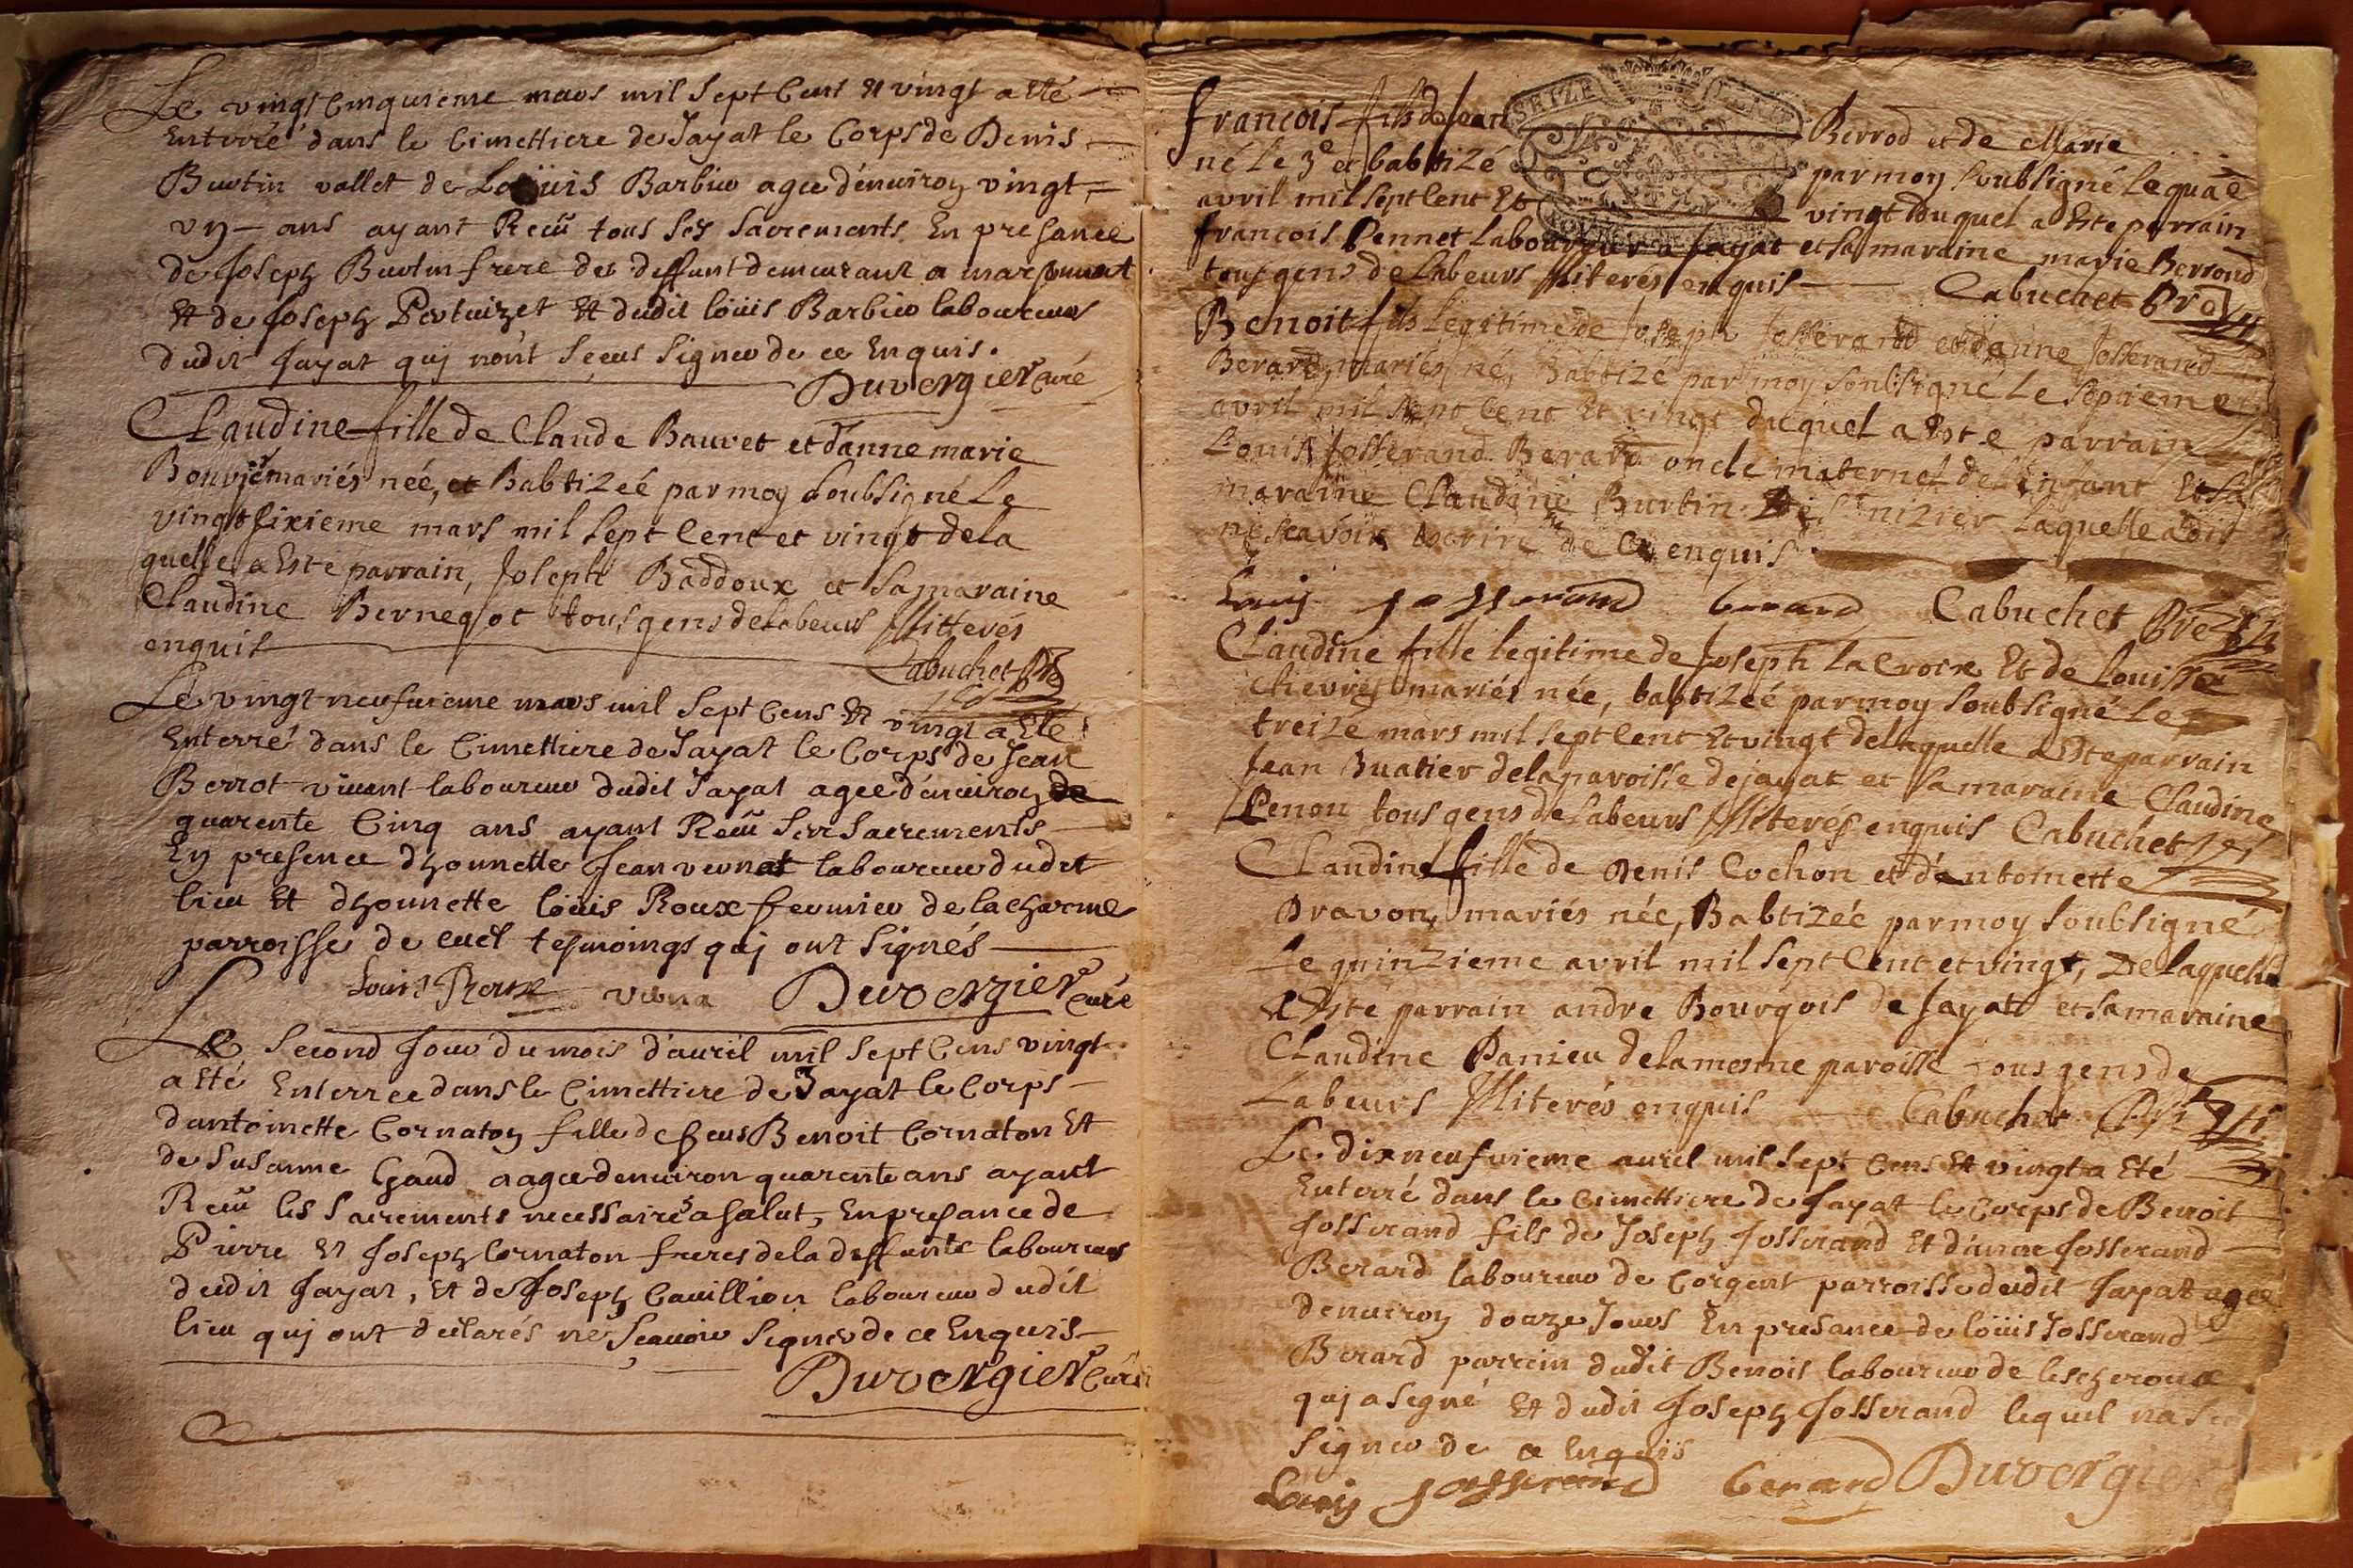 Le vingt cinquieme mars mil sept cens et vingt a été
Enterré dans le cimettiere de Jayat le Corps de Denis
Burtin vallet de Loüis Barbier agee d'enuiron vingt
vn ans ayant Reçû tous ses sacrements En presance
de Joseph Burtin frere du deffunt demeurant a marsonnat
et de Joseph Pertuizet Et dudit loüis Barbier laboureurs
dudit Jayat quj n'ont sçeus signer de ce Enquis.
Duvergier Curé
Claudine fille de Claude Bauvet et d'anne marie
Bouvier mariés née, et Babtizeé par moy soubsigné Le
vingt sixieme mars mil sept Cent et vingt de la
quelle a Esté parrain, Joseph Baddoux et sa maraine
Claudine Bernegoc tous gens de Labeurs Illiterés
enquis
Cabuchet Pre
Le vingt neufuieme mars mil sept Cens Et vingt a Eté
Enterré dans le Cimettiere de Jayat le Corps de Jean
Berrot viuant laboureur dudit Jayat agee d'enuiron de
quarente Cinq ans ayant Reçû ses sacrements
En presence d'honnette Jean vernat laboureur dudit
lieu Et d'honnette loüis Roux fermier de la charme
parroisse de cuet tesmoings quj ont signés
Louis Roux verna Duvergier Curé
Le second Jour du mois d'auril mil sept Cens vingt
a Eté Enterree dans le Cimettiere de Jayat le Corps
d'antoinette Cornaton fille de feus Benoit Cornaton Et
de Susanne Gaud aagee denuiron quarente ans ayant
Reçû les sacrements necessaires a salut, En presance de
Pierre Et Joseph Cornaton freres de la deffunte laboureurs
dudit Jayat, Et de Joseph Cauillion laboureur dudit
lieu quj ont declarés ne sçauoir signer de ce Enquis
Duvergier Curé
SEIZE
françois fils de Jean Berrod et de Marie
né le 3e et babtizé par moy soubsigné Le quae
avril mil sept Cent Et vingt duquel a Esté parrain
françois Pennet Laboureur a Jayat et sa maraine marie Berrond
tous gens de Labeurs Illiterés enquis Cabuchet Pre
Benoit fils legitime de Joseph Josserand et d'anne Josserand
Berard, mariés né, Babtizé par moy soubsigné Le septieme
avril mil sept Cent Et vingt duquel a Esté parrain
Louis Josserand Berard oncle maternel de l'enfant Et sa
maraine Claudine Burtin De St nizier Laquelle a dit
ne scavoir escrire de Ce enquis
Louis Josserand berard Cabuchet Pre
Claudine fille legitime de Joseph La Croix Et de Louisse
Chevrey mariés née, babtizeé par moy soubsigné Le
treize mars mil sept Cent Et vingt de laquelle a Esté parrain
Jean Buatier de la paroisse de jayat et sa maraine Claudine
Penon tous gens de Labeurs Illiterés enquis Cabuchet
Claudine fille de Denis Cochon et d'antoinette
Dravon, mariés née, Babtizée par moy soubsigné
Le quinzieme avril mil sept Cent et vingt, De Laquelle
a Esté parrain andre Bourgois de Jayat et sa maraine
Claudine Panieu de la mesme paroisse tous gens de
Labeurs Illiterés enquis Cabuchet Pre
Le dixneufuieme auril mil sept Cens Et vingt a Eté
Enterré dans le Cimettiere de Jayat le Corps de Benoit
Josserand fils de Joseph Josserand Et d'anne Josserand
Berard laboureur de Corgent parroisse dudit Jayat agee
denuiron douze Jours En presance de loüis Josserand
Berard parrein dudit Benois laboureur de lescheroux
quj a signé Et dudit Joseph Josserand lequel na
signer de ce Enquis
Louis Josserand berard Duvergier